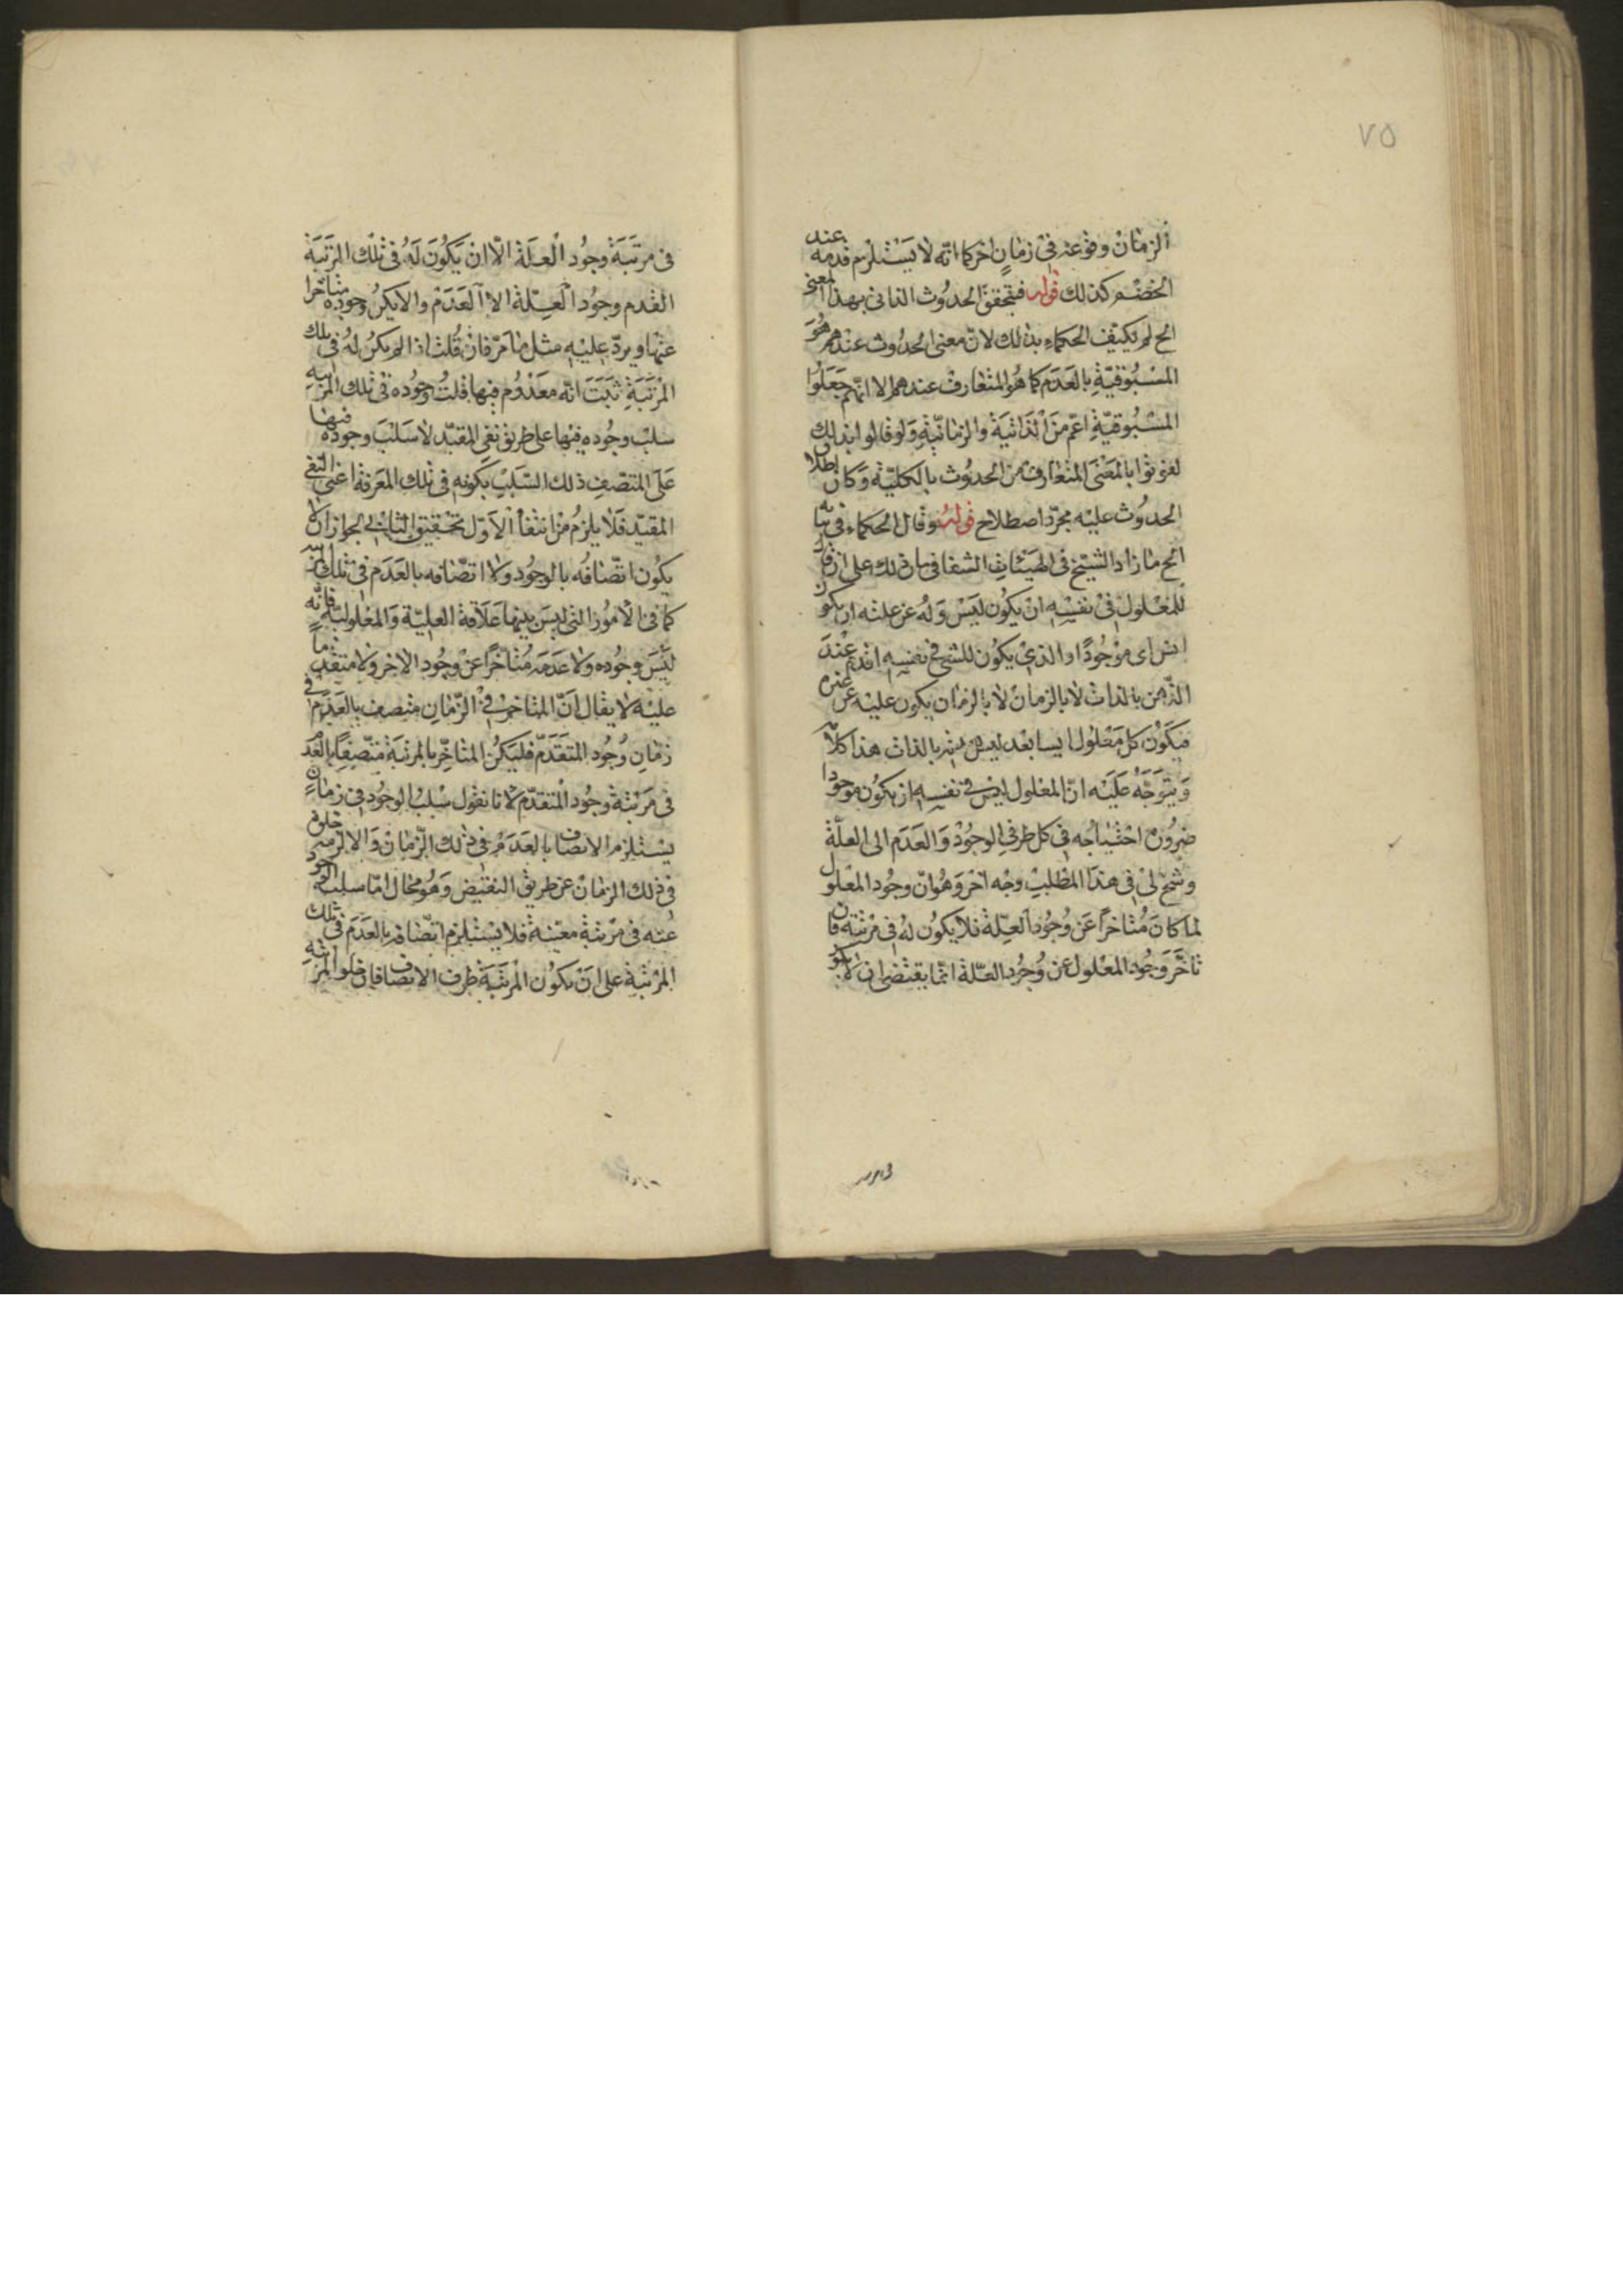 ٧٥
الزمان وقوعه فى زمان اخر كما انّه لا يستلزم قدمه عند
الخصم كذلك قوله فتحقق الحدوث الذاتى بهذا المعنى
الح لم يكتف الحكماء بذلك لانّ معنى الحدوث عندهم هو
المسبوقيّة بالعدم كما هو المتعارف عندهم الا انّهم جعلوا
المسبوقيّة اعمّ من الذاتية والزمانيّة ولو قالوا بذلك
بالمعنى المتعارف من الحدوث بالكليّة وكان اطلاق
الحدوث عليه مجرّد اصطلاح قوله وقال الحكماء فى بيانه
الح ما زاد الشيخ فى الهيئات الشفا فى بيان ذلك على ان قال
للمعلول فى نفسه ان يكون ليس وله عن علته ان يكون
ايس اى موجودًا والذى يكون للشئ فى نفسه اقدم عند
الذهن بالذات لا بالزمان يكون عليه عن غيره
فيكون كل معلول ايسا بعد ليس بالذات هذا كلامه
ويتوجّه عليه انّ المعلول ليس فى نفسه ان يكون موجودا
ضرورة احتياجه فى كل طرفى الوجود والعدم الى العلّة
وسنح لى فى هذا المطلب وجه اخر وهو انّ وجود المعلول
لما كان متاخرًا عن وجود العلّة فلا يكون له فى مرتبة فان
تاخّر وجود المعلول عن وجود العلّة انّما يقتضى ان لا يكون
فى مرتبة وجود العلّة الّا ان يكون له فى تلك المرتبة
القدم وجود العلّة الا العدم والا لا يكن وجوده متاخرا
عنها ويردّ عليه مثل ما مرّ فان قلت اذا لم يكن له فى تلك
المرتبة ثبت انّه معدوم فيها قلت وجوده فى تلك المرتبة
سلب وجوده فيها على طريق نفى المقيّد لا سلب وجوده فيها
على المتّصف ذلك السّلب بكونه فى تلك المعرفة اعنى النفى
المقيّد فلا يلزم من انتفأ الاوّل تحقيق الثانى لجواز ان لا
يكون اتّصافه بالوجود ولا اتصّافه بالعدم فى تلك المرتبة
كما فى الامور التى ليس بينها علاقة العليّة والمعلوليّة فانّه
ليس وجوده ولا عدمه متاخرًا عن وجود الاخر ولا متقدما
عليه لا يقال انّ المتاخر فى الزمان متصف بالعدم فى
زمان وجود المتقدّم فليكن المتاخّر بالمرتبة متّصفا بالعدم
فى مرتبة وجود المتقدّم لانا نقول سلب الوجود فى زمان
يستلزم الاتصاف بالعدم فى ذلك الزمان والا لزم خلوه
فى ذلك الزمان عن طريق النقيض وهو محال امّا سلب الوجود
عنه فى مرتبة معيّنة فلا يستلزم اتّصافه بالعدم فى تلك
المرتبة على ان يكون المرتبة ظرف الاتصاف فان خلو المرتبة
فى مرتبه